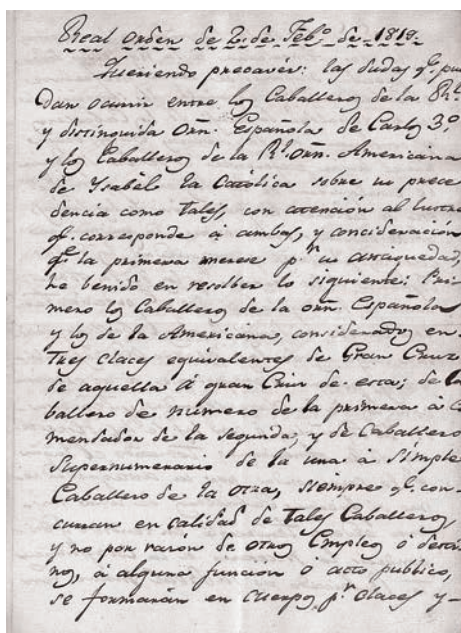 Real orden de 2 de Feb.o de 1819.
Queriendo precavér: las dudas q.e pue
dan ocurrir entre los Caballeros de la Rl.
y distinguida Orn. Española de Carlos 3.o
y los Caballeros de la Rl. Orn. Americana
de Ysabèl la Catòlica sobre su prece
dencia como tales, con atención al lustre
q.e corresponde à ambas, y concideración
q.e la primera merese p.r su antiguedad,
he benido en resolber lo siguiente: Pri
mero los Caballeros de la orn. Española
y los de la Americana, considerados en
tres clases equivalentes de Gran Cruz
de aquella à gran Cruz de esta; de Ca
ballero de número de la primera à Co
mendador de la segunda, y de Caballero
Supernumerario de la una à símple
Caballero de la otra, siempre q.e con-
curran en calidad de tales Caballeros,
y no por razón de otros Empleos ó desti
nos, à alguna función o acto publico,
se formarán en cuerpo, p.r clases y-